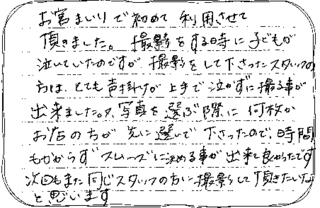 お宮まいりで初めて利用させて
頂きました。撮影をする時に子どもが
泣いていたのですが撮影をして下さったスタッフの
方は、とても声掛けが上手で泣かずに撮る事が
出来ました。又、写真を選ぶ際に何枚か
お店の方が先に選んで下さったので、時間
もかからずスムーズに決める事が出来良かったです
次回もまた同じスタッフの方に撮影して頂きたいな
と思います